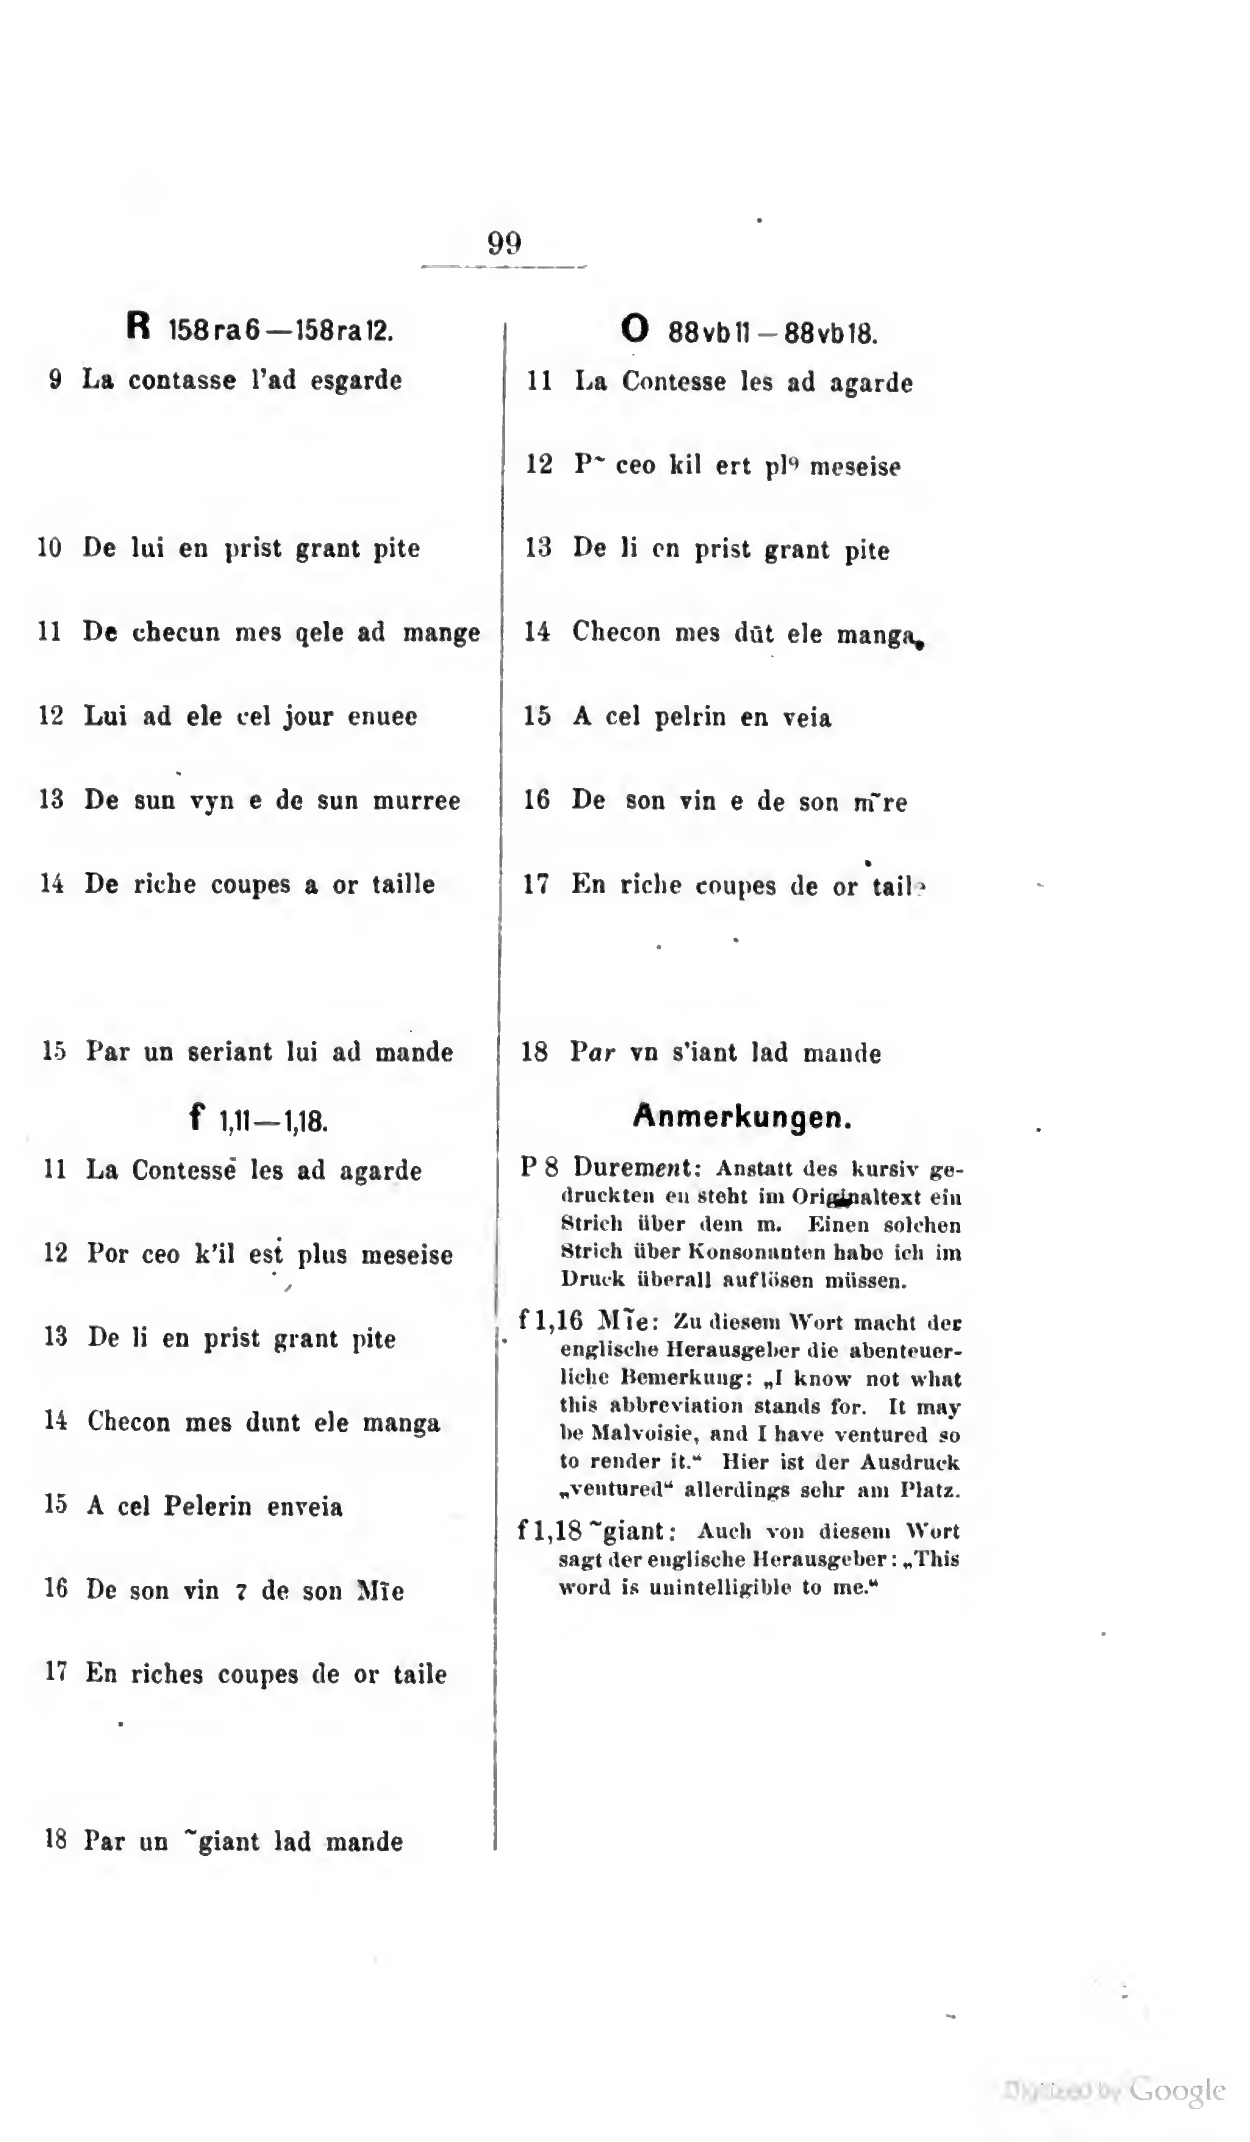 99
R 158ra6—158ra12.
9 La contasse l'ad esgarde
10 De lui en prist grant pite
11 De checun mes qele ad mange
12 Lui ad ele cel jour enuee
13 De sun vyn e de sun murree
14 De riche coupes a or taille
15 Par un seriant lui ad mande
f 1,11—1,18.
11 La Contesse les ad agarde
12 Por ceo k'il est plus meseise
13 De li en prist grant pite
14 Checon mes dunt ele manga
15 A cel Pelerin enveia
16 De son vin ⁊ de son Mĩe
17 En riches coupes de or taile
18 Par un ~giant lad mande
O 88vb11—88vb18.
11 La Contesse les ad agarde
12 P~ ceo kil ert plꝰ meseise
13 De li en prist grant pite
14 Checon mes dūt ele manga
15 A cel pelrin en veia
16 De son vin e de son m~re
17 En riche coupes de or taile
18 Par vn s'iant lad mande
Anmerkungen.
P 8 Durement: Anstatt des kursiv ge-
druckten en steht im Originaltext ein
Strich über dem m. Einen solchen
Strich über Konsonanten habe ich im
Druck überall auflösen müssen.
f 1,16 M~ie: Zu diesem Wort macht der
englische Herausgeber die abenteuer-
liche Bemerkung: „I know not what
this abbreviation stands for. It may
be Malvoisie, and I have ventured so
to render it.“ Hier ist der Ausdruck
„ventured“ allerdings sehr am Platz.
f 1,18 ~giant: Auch von diesem Wort
sagt der englische Herausgeber: „This
word is unintelligible to me.“
Digitized by Google